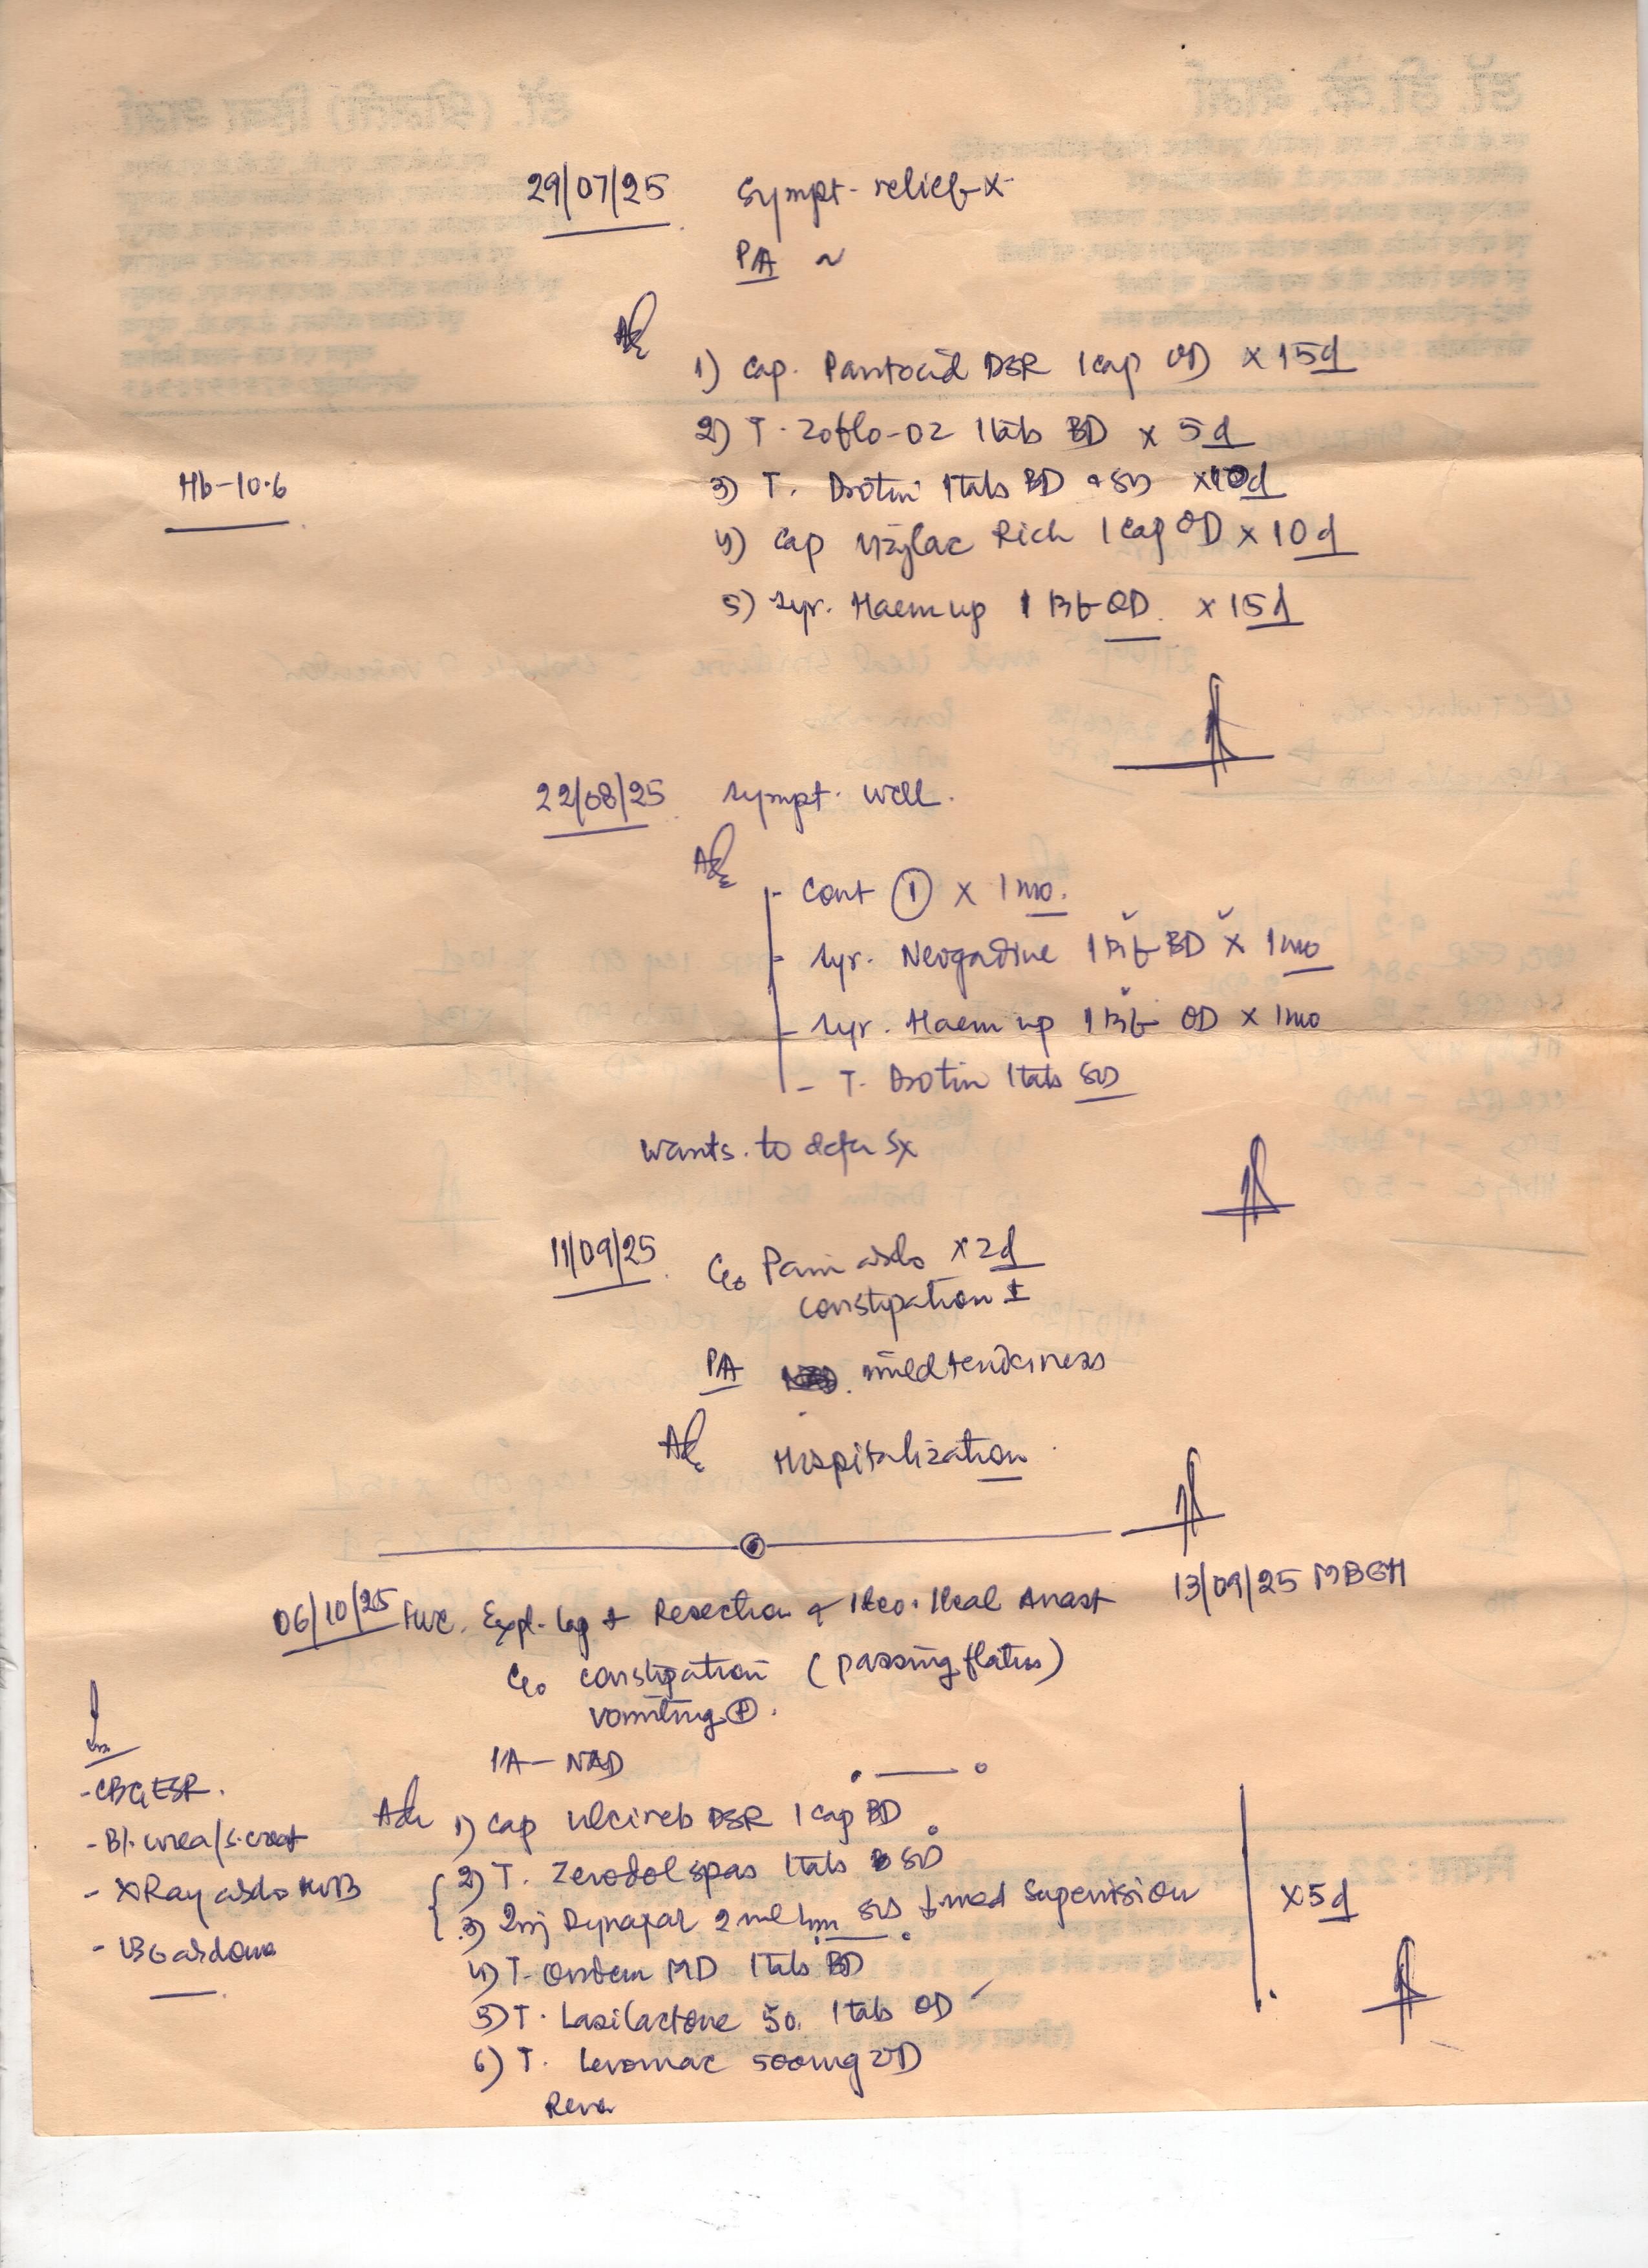 29/07/25 Sympt- relief-x
PA ~
Adv
1) Cap. Pantocid DSR 1cap OD x 15d
2) T. Zoflo-OZ 1tab BD x 5d
Hb-10.6
3) T. Drotin 1tab BD x10d
4) Cap Vizylac Rich 1cap OD x 10d
5) Syr. Haem up 1 tsf OD. x 15d
22/08/25 Sympt. well.
Adv
- Cont ① x 1mo.
- Syr. Neogadine 1tsf BD x 1mo
- Syr. Haem up 1tsf OD x 1mo
- T. Drotin 1tab SOS
Wants. to defer Sx
11/09/25 C/o Pain abdo x2d
constipation ±
PA mild tenderness
Adv Hospitalization
13/09/25 MBGH
06/10/25 FUC. Expl. lap + Resection & Ileo-Ileal Anast
C/o constipation (passing flatus)
vomiting ⊕.
P/A - NAD
- CBC, ESR.
- Bl. urea/S. creat
- XRay abdo KUB
- USG abdomen
Adv 1) Cap Ulcireb DSR 1cap BD
2) T. Zerodol spas 1tab SOS
3) Inj Dynapar 2ml Im SOS med Supervision
4) T. Ondem MD 1tab BD
5) T. Lasilactone 50. 1tab OD
6) T. Levomac 500mg OD
x5d